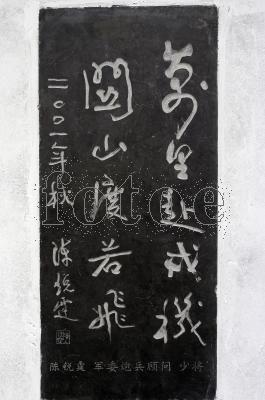 萬里赴戎機
關山度若飛
二〇〇一年秋 陈锐霆
陈锐霆 军委炮兵顾问 少将
fotoe